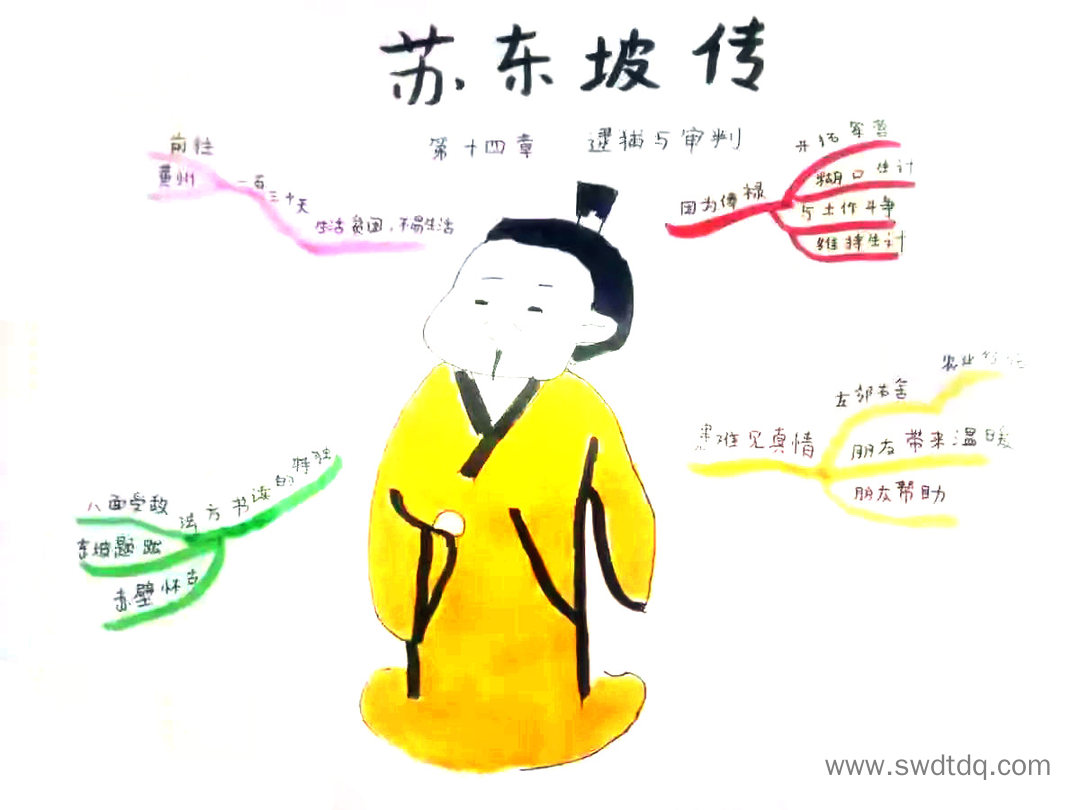 苏东坡传
第十四章 逮捕与审判
前往
黄州
一百三十天
生活贫困，不易生活
因为俸禄
开拓军营
糊口生计
与土作斗争
维持生计
患难见真情
左邻右舍
农业
朋友带来温暖
朋友帮助
特独的读书方法
八面学政
东坡题跋
赤壁怀古
www.swdtdq.com